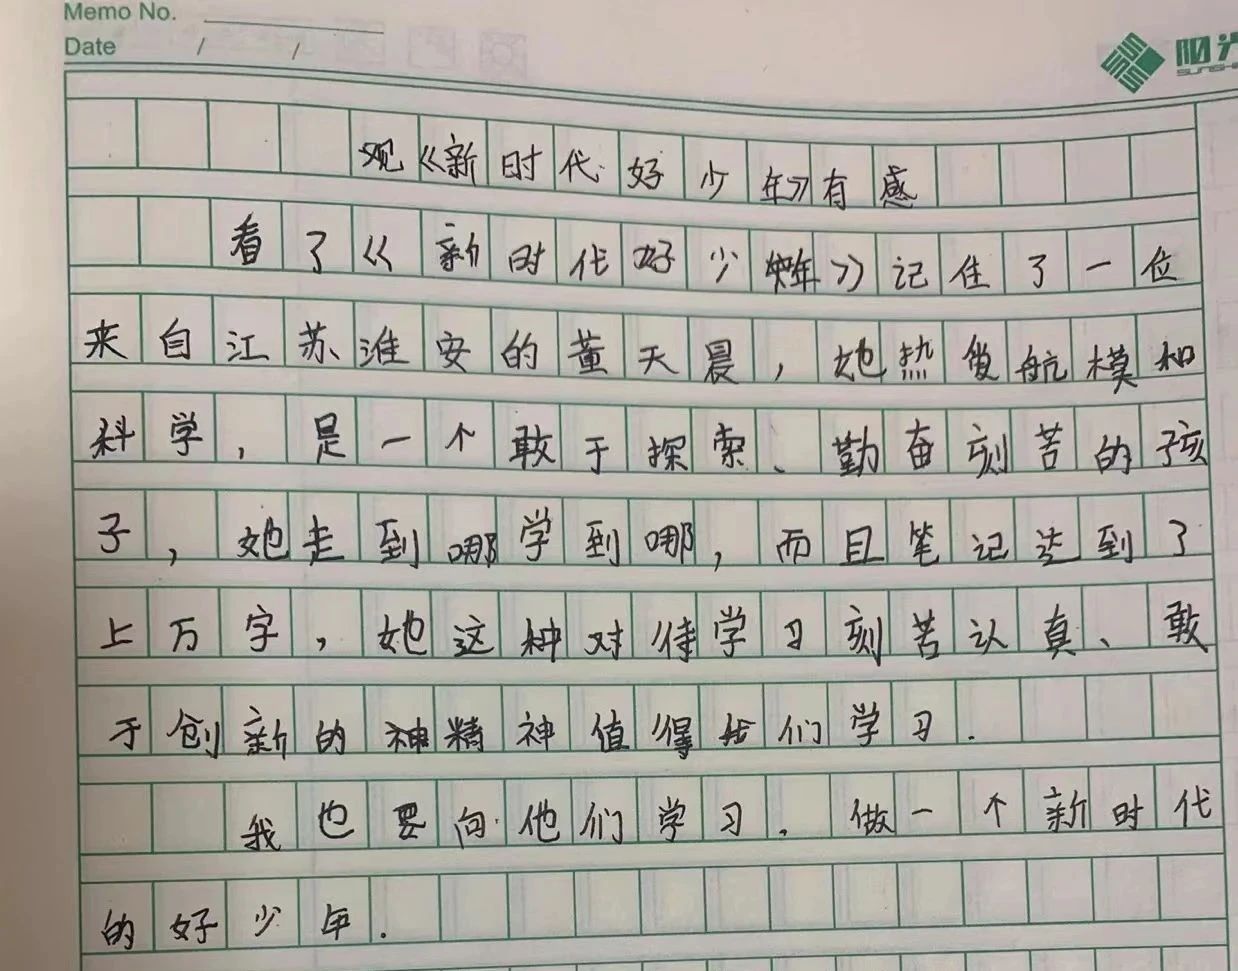 Memo No.
Date / /
阳光
观《新时代好少年》有感
看了《新时代好少年》记住了一位
来自江苏淮安的董天晨，她热爱航模和
科学，是一个敢于探索、勤奋刻苦的孩
子，她走到哪学到哪，而且笔记达到了
上万字，她这种对待学习刻苦认真、敢
于创新的神精神值得我们学习.
我也要向他们学习.做一个新时代
的好少年.